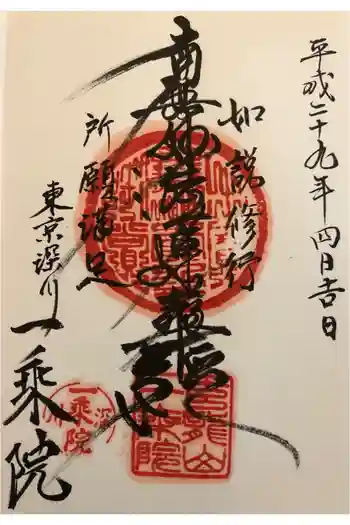 平成二十九年四月吉日
如説修行
南無妙法蓮華経
所願満足
東京深川
一乗院
一乗院